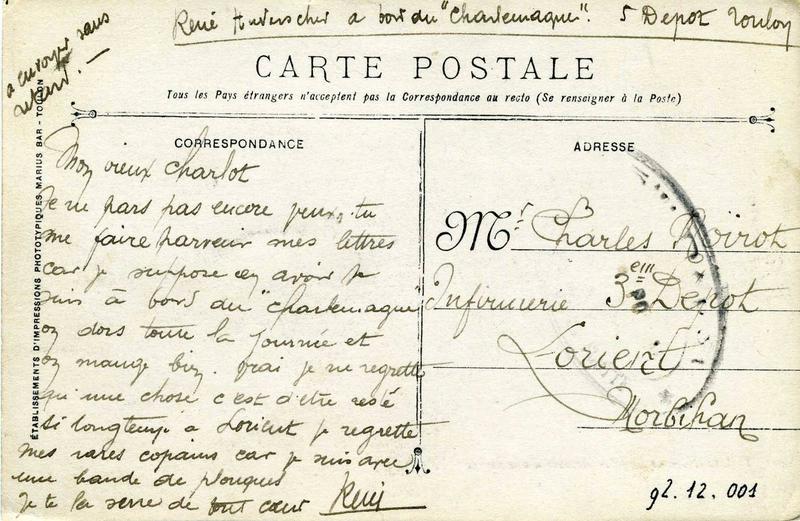 René à bord du "Charlemagne". 5 Depot Toulon
a envoyer sans
retard. —
CARTE POSTALE
Tous les Pays étrangers n'acceptent pas la Correspondance au recto (Se renseigner à la Poste)
ÉTABLISSEMENTS D'IMPRESSIONS PHOTOTYPIQUES MARIUS BAR - TOULON
CORRESPONDANCE
Mon vieux Charlot
Je ne pars pas encore peux tu
me faire parvenir mes lettres
car je suppose en avoir je
suis à bord du "Charlemagne"
on dors toute la journée et
on mange bien. vrai je ne regrette
qu'une chose c'est d'être resté
si longtemps a Lorient je regrette
mes rares copains car je suis avec
une bande de plouques
Je te la serre de tout cœur René
ADRESSE
Mr Charles Poirot
Infirmerie 3em Depot
Lorient
Morbihan
92.12.001